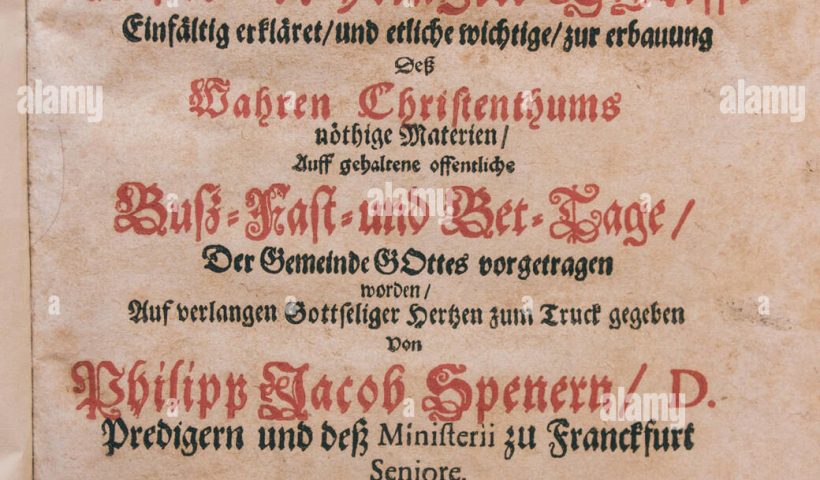 Einfältig erkläret/und etliche wichtige/zur erbauung
Deß
Wahren Christenthums
nöthige Materien/
Auff gehaltene offentliche
Buß-Fast-und Bet-Tage/
Der Gemeinde GOttes vorgetragen
worden/
Auf verlangen Gottseliger Hertzen zum Truck gegeben
Von
Philipp Jacob Spenern/ D.
Predigern und deß Ministerii zu Franckfurt
Seniore.
alamy
alamy
alamy
alamy
a
a
a
a
a